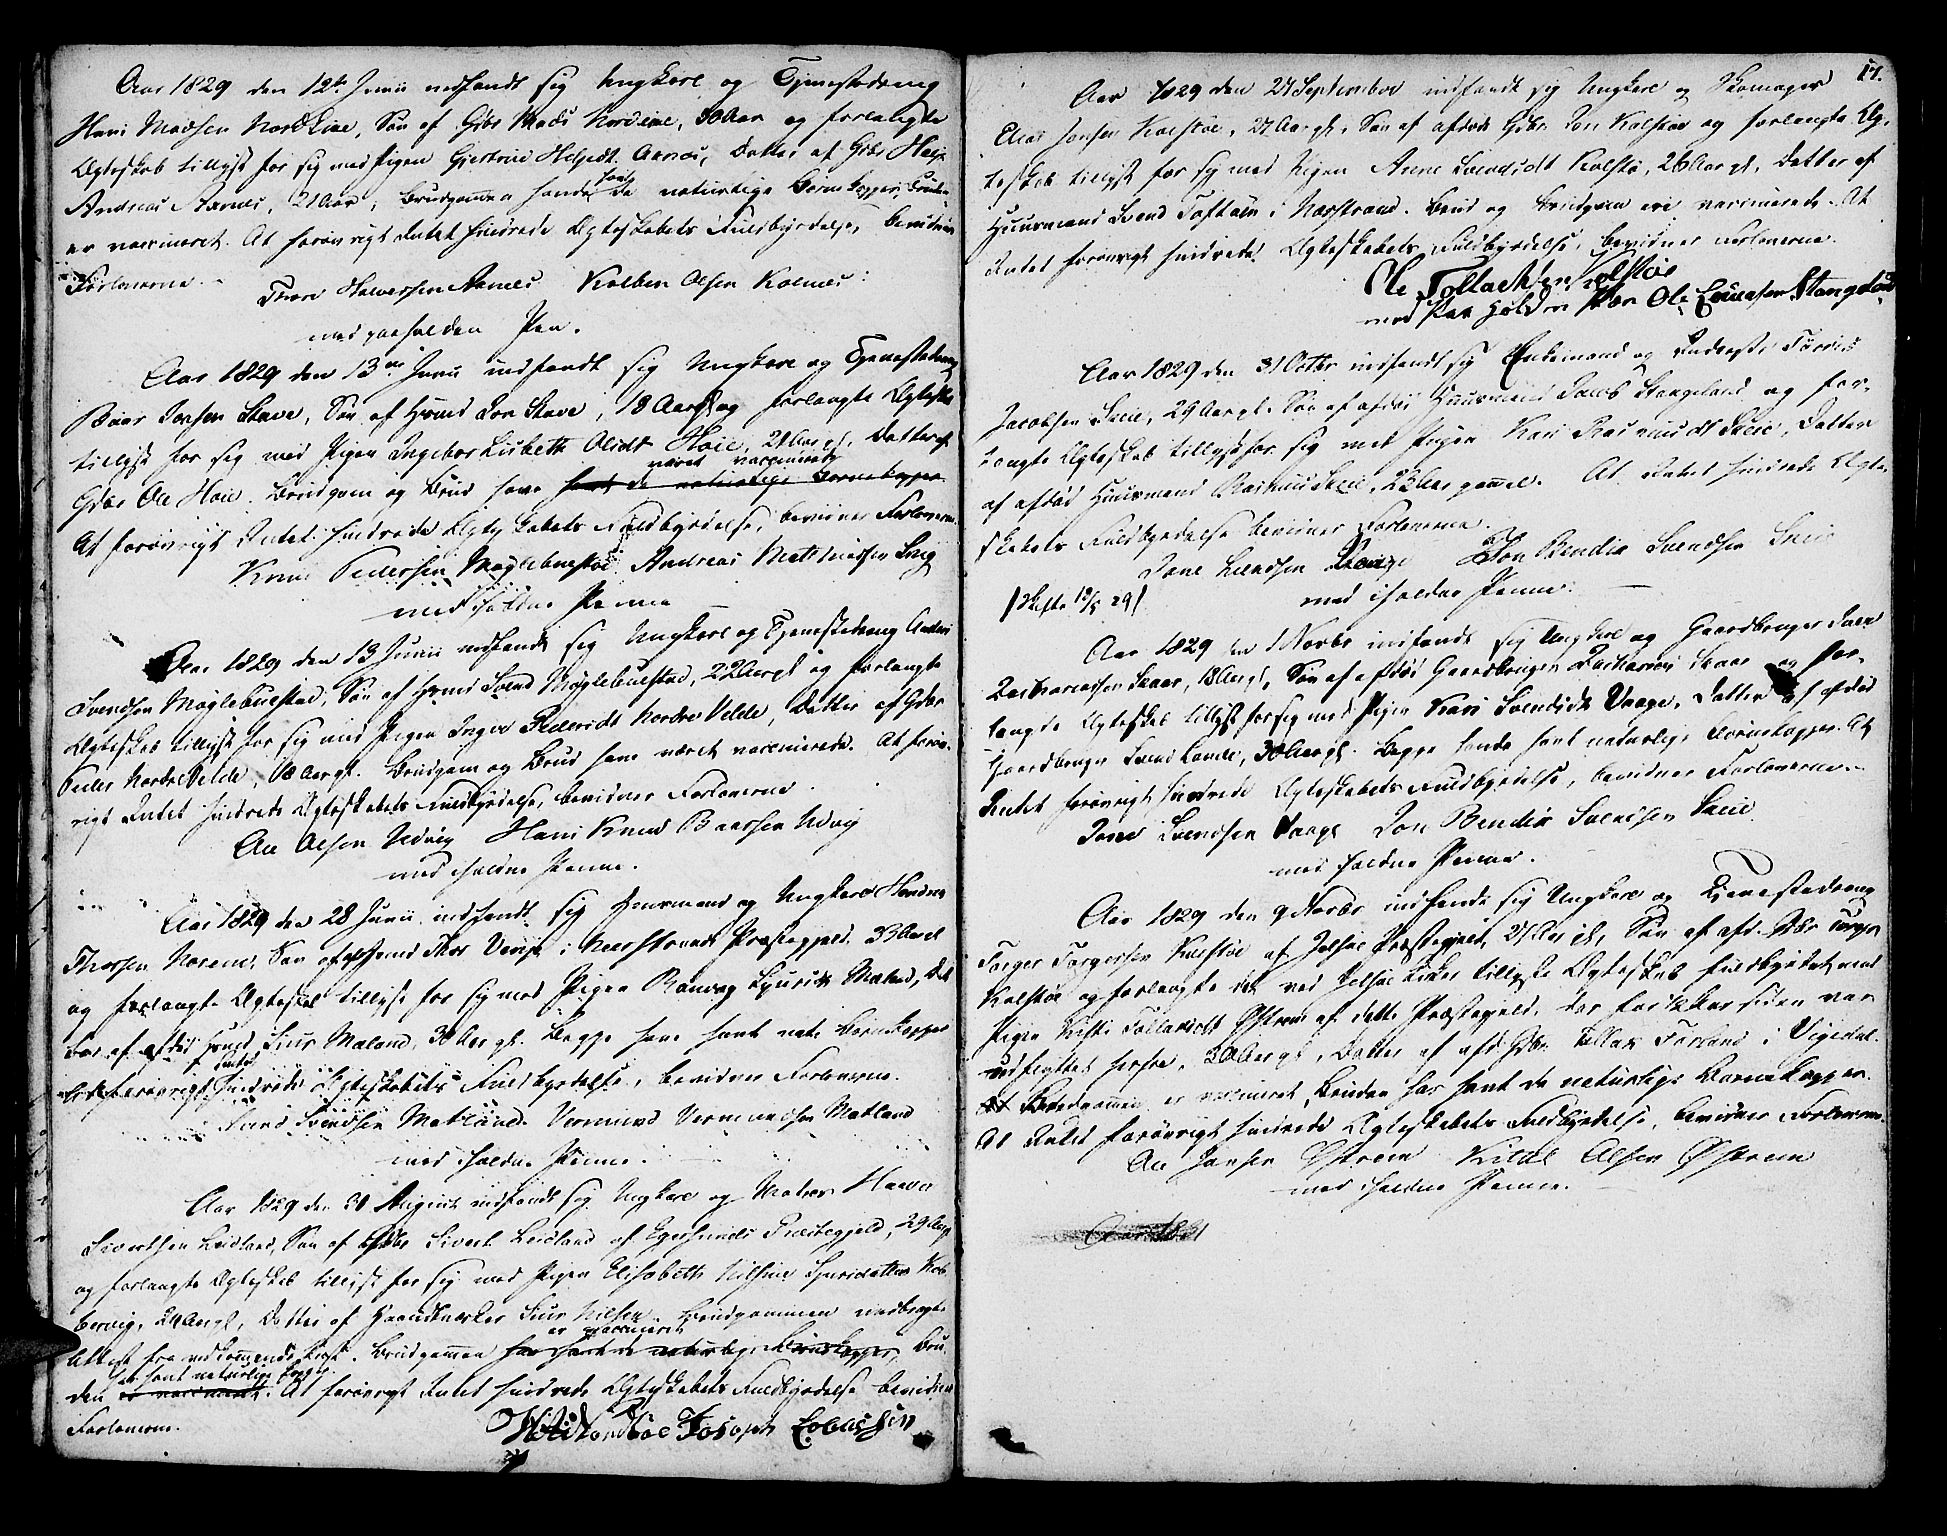 Aar 1829 den 12te Junii indfandt sig Ungkarl og Tjenestedreng
Hans Madsen Nordlime, Søn af Gdbr Mads Nordlime, 30 Aar og forlangte
Ægteskab tillyst for sig med Pigen Giertrue Helgedt. Aarnes, Datter af Gdbr Helge
Andreas Aarnes, 21 Aar, Brudgommen havde havt de naturlige Børne Kopper, Bruden
er vaccineret. At forøvrigt Intet hindrede Ægteskabets Fuldbyrdelse, bevidner
Forloverne.
Thore Halversen Aarnes Kolben Olsen Kolnes
med paaholden Pen.
Aar 1829 den 13de Junii indfandt sig Ungkarl og Tjenestedreng
Baar Jonsen Stave, Søn af Hmd Jon Stave, 18 Aar gl og forlangte Ægteskab
tillyst for sig med Pigen Ingebor Lisbeth Olsdt Høie, 21 Aar gl, Datter af
været vaccinerede
Gdbr Ole Høie. Brudgom og Brud have havt de naturlige Børnekopper
At forøvrigt Intet hindrede Ægteskabets Fuldbyrdelse, bevidner Forloverne
Knud Pedersen Møglebuestad Andreas Mathiesen
med iholdne Penne
Aar 1829 den 13 Junii indfandt sig Ungkarl og Tjenestedreng
Svendsen Møglebuestad, Søn af Hmd Svend Møglebuestad, 22 Aar gl og forlangte
Ægteskab tillyst for sig med Pigen Inger Pedersdt Nordre Velde, Datter af Gdbr
Peder Nordre Velde, Aar gl. Brudgom og Brud have været vaccinerede. At forøv-
rigt Intet hindrede Ægteskabets Fuldbyrdelse, bevidner Forloverne
Ole Olsen Udvig Hans Knud Baarsen Udvig
med iholdne Penne.
Aar 1829 den 28 Junii indfandt sig Huusmand og Ungkarl
Thorsen Norem, Søn af Hmd Thor i Nærstrands Præstegjeld 33 Aar gl
og forlangte Ægteskab tillyst for sig med Pigen Ranveg Sjursdt Maland, Dat-
ter af afdød Hmd Siur Maland, 30 Aar gl. Begge have havt nat. Børnekopper
Intet
At forøvrigt hindrede Ægteskabets Fuldbyrdelse, bevidner Forloverne.
Svend Svendsen Matland. Vermund Vermundsen Matland
med iholdne Penne.
Aar 1829 den 31 August indfandt sig Ungkarl og Matros
Sivertsen Leidland, Søn af Gdbr Sivert Leidland af Egersunds Præstegjeld, 29 Aar gl
og forlangte Ægteskab tillyst for sig med Pigen Elisabeth Nilsine Sjursdatter Kob-
bervig, Aar gl, Datter af Haandværker Siur Nilsen. Brudgommen medbragte
er vaccineret
Attest fra vedkommende Præst. Brudgommen har havt de naturlige Børnekopper, Bru-
har havt naturlige
den er vaccineret. At forøvrigt Intet hindrede Ægteskabets Fuldbyrdelse bevidner
Forloverne.
17.
Aar 1829 den 27 September indfandt sig Ungkarl og Skomager
Elias Jonsen Kolstøe, 27 Aar gl, Søn af afdøde Gdbr. Jon Kolstøe og forlangte Æg-
teskab tillyst for sig med Pigen Anne Svendsdt Kolstøe, 26 Aar gl, Datter af
Huusmand Svend Toftøen i Nærstrand. Brud og Brudgom ere vaccinerede. At
Intet forøvrigt hindrede Ægteskabets Fuldbyrdelse, bevidner Forloverne.
Ole Tollachsen Kolstøe
med Paa Holden Pen Ole Stangeland
Aar 1829 den 31 Octbr indfandt sig Enkemand og Inderste Tørres
Jacobsen Skeie, 29 Aar gl. Søn af afdød Huusmand Jacob Stangeland og for-
langte Ægteskab tillyst for sig med Pigen Kari Rasmusdt Skeie, Datter
af afdød Huusmand Rasmus Skeie, 23 Aar gammel. At Intet hindrede Ægte-
skabets Fuldbyrdelse bevidner Forloverne.
Jone Svendsen Vaage Jon Bendix Svendsen Skeie
Skifte 12/5 29 med iholdne Penne.
Aar 1829 den 1 Novbr indfandt sig Ungkarl og Gaardbruger
Zachariassen Skaar, 18 Aar gl, Søn af afdød Gaardbruger Zacharias Skaar og for-
langte Ægteskab tillyst for sig med Pigen Kari Svendsdt Vaage, Datter af afdød
Gaardbruger Svend Lande, 30 Aar gl. Begge havde havt naturlige Børnekopper. At
Intet forøvrigt hindrede Ægteskabets Fuldbyrdelse, bevidner Forloverne.
Jone Svendsen Vaage Jon Bendix Svendsen Skeie
med iholdne Penne.
Aar 1829 den 9 Novbr indfandt sig Ungkarl og Tjenestedreng
Torger Torgersen Kolstøe af Jelsøe Præstegjeld, 27 Aar gl, Søn af afd. Torger
Kolstøe og forlangte det ved Jelsøe Kirke tillyste Ægteskab fuldbyrdet med
Pigen Tollaksdt Østrem af dette Præstegjeld, der siden var
indflyttet hertil, Aar gl, Datter af afd. Gdbr. Tollak Førland i Vigedal.
Brudgommen er vaccineret, Bruden har havt de naturlige Børnekopper.
At Intet forøvrigt hindrede Ægteskabets Fuldbyrdelse, bevidner Forloverne.
Ole Jansen Østrem Kitel Olsen Østrem
med iholdne Penne.